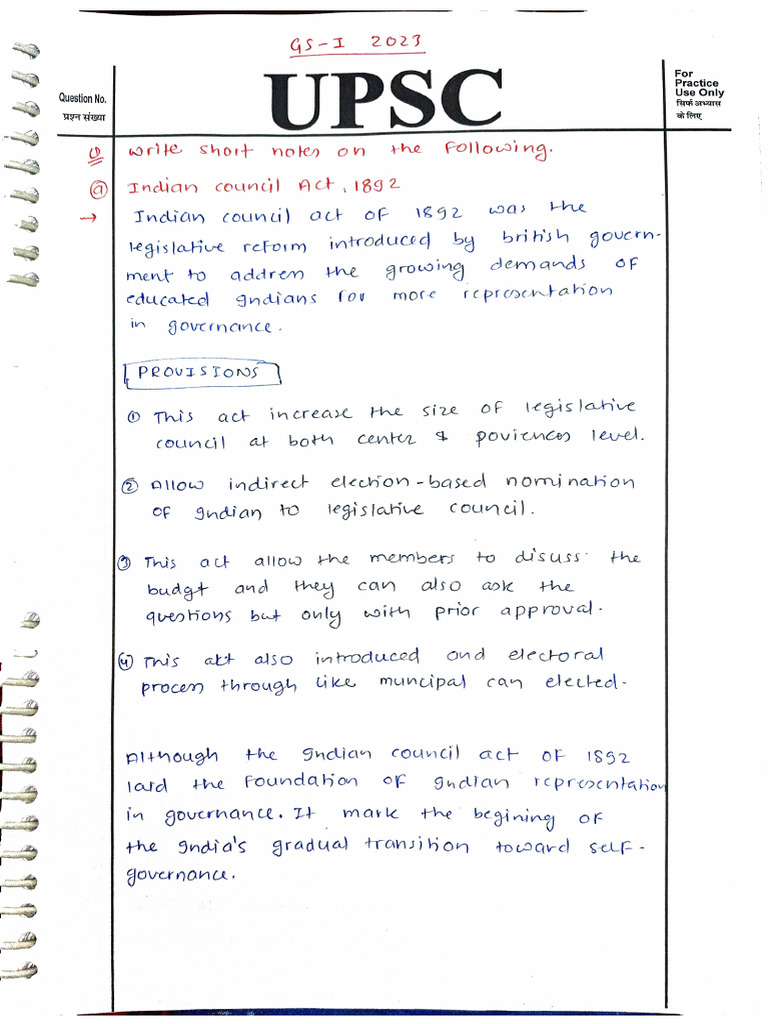 GS-I 2023
UPSC
Question No.
प्रश्न संख्या
For
Practice
Use Only
सिर्फ अभ्यास
के लिए
Q Write short notes on the following.
a Indian council Act, 1892
→ Indian council act of 1892 was the
legislative reform introduced by british govern-
ment to address the growing demands of
educated Indians for more representation
in governance.
PROVISIONS
① This act increase the size of legislative
council at both center & poviences level.
② Allow indirect election-based nomination
of Indian to legislative council.
③ This act allow the members to disuss the
budgt and they can also ask the
questions but only with prior approval.
④ This act also introduced and electoral
process through like muncipal can elected.
Although the Indian council act of 1892
laid the foundation of Indian representation
in governance. It mark the begining of
the India's gradual transition toward self-
governance.